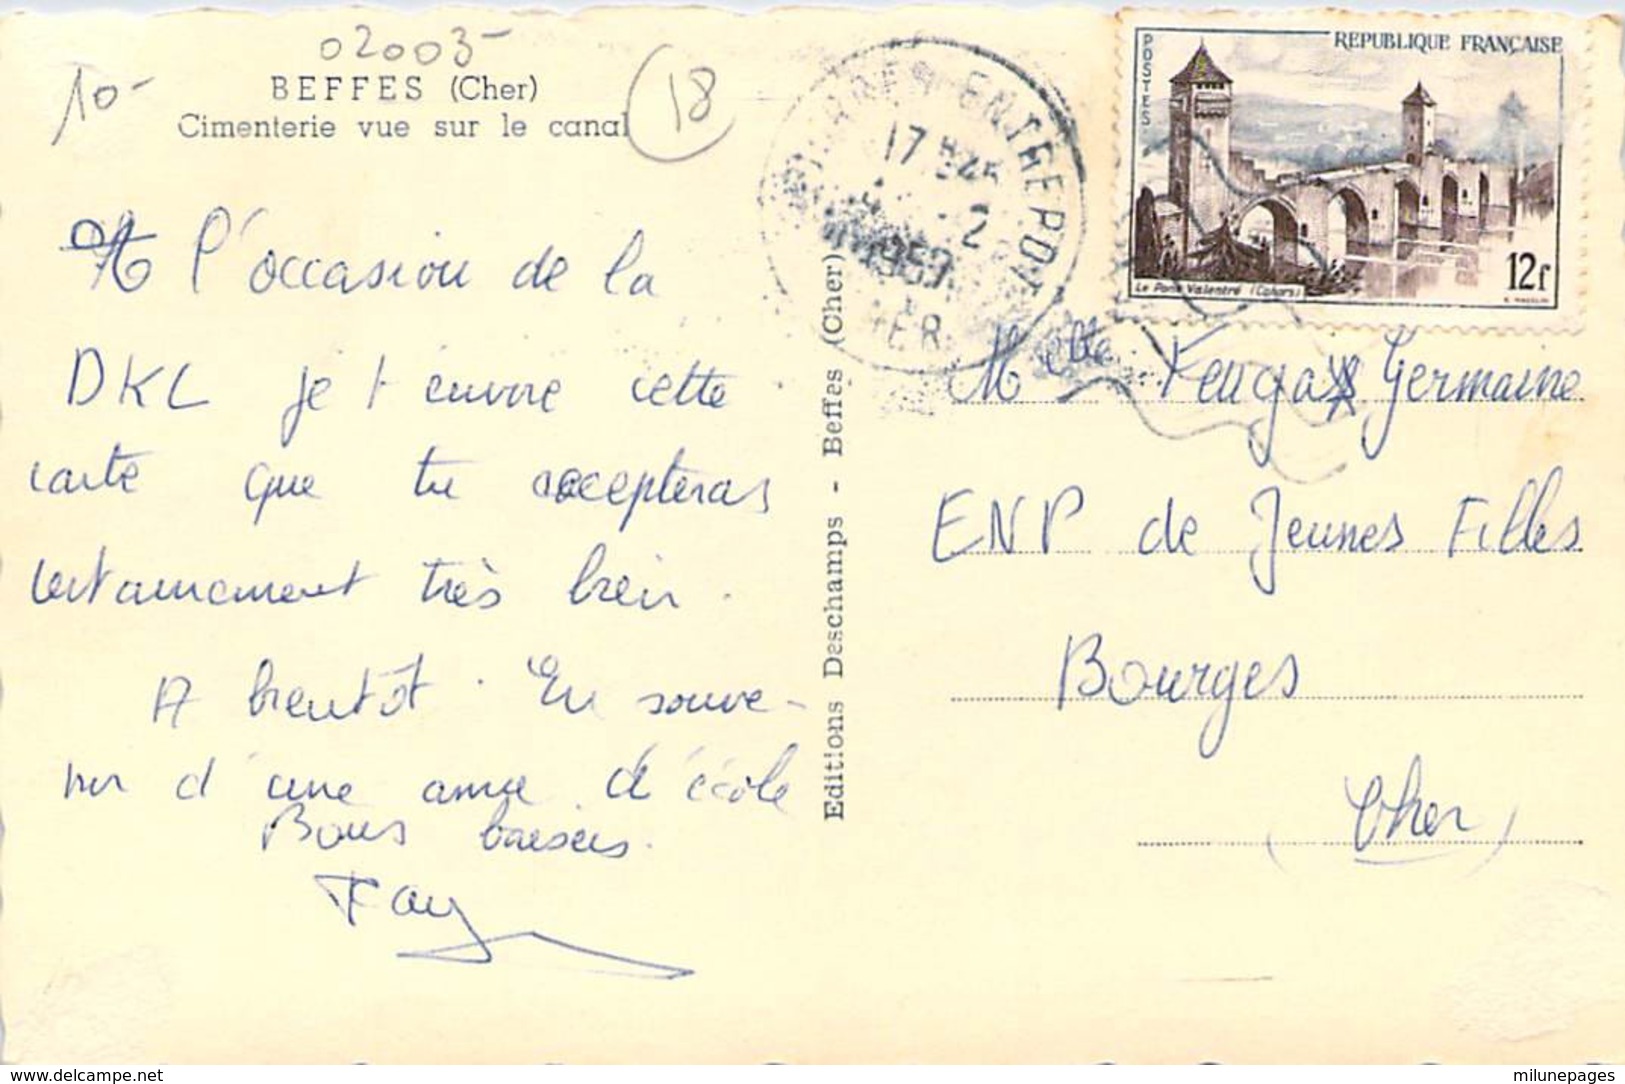 02003-
10-
BEFFES (Cher)
18
Cimenterie vue sur le canal
A l'occasion de la
DKL je t'envoie cette
carte que tu accepteras
certainement très bien.
A bientôt. En souve-
nir d'une amie d'école
Bons baisers.
Fay
Editions Deschamps - Beffes (Cher)
ENTREPOT
17 H45
2
REPUBLIQUE FRANÇAISE
POSTES
Le Pont Valentré (Cahors)
12f
Melle Feugas Germaine
ENP de Jeunes Filles
Bourges
(Cher)
www.delcampe.net
milunepages